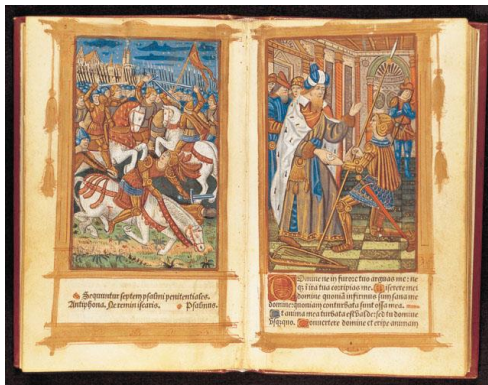 Sequuntur septem psalmi penitentiales.
Antiphona. Ne reminiscaris. Psalmus.
Domine ne in furore tuo arguas me: ne
q; i ira tua corripias me. Miserere mei
domine quoniã infirmus sum sana me
domine: quoniam conturbata sunt ossa mea.
Et anima mea turbata est valde: sed tu domine
vsquequo. Conuertere domine et eripe animam